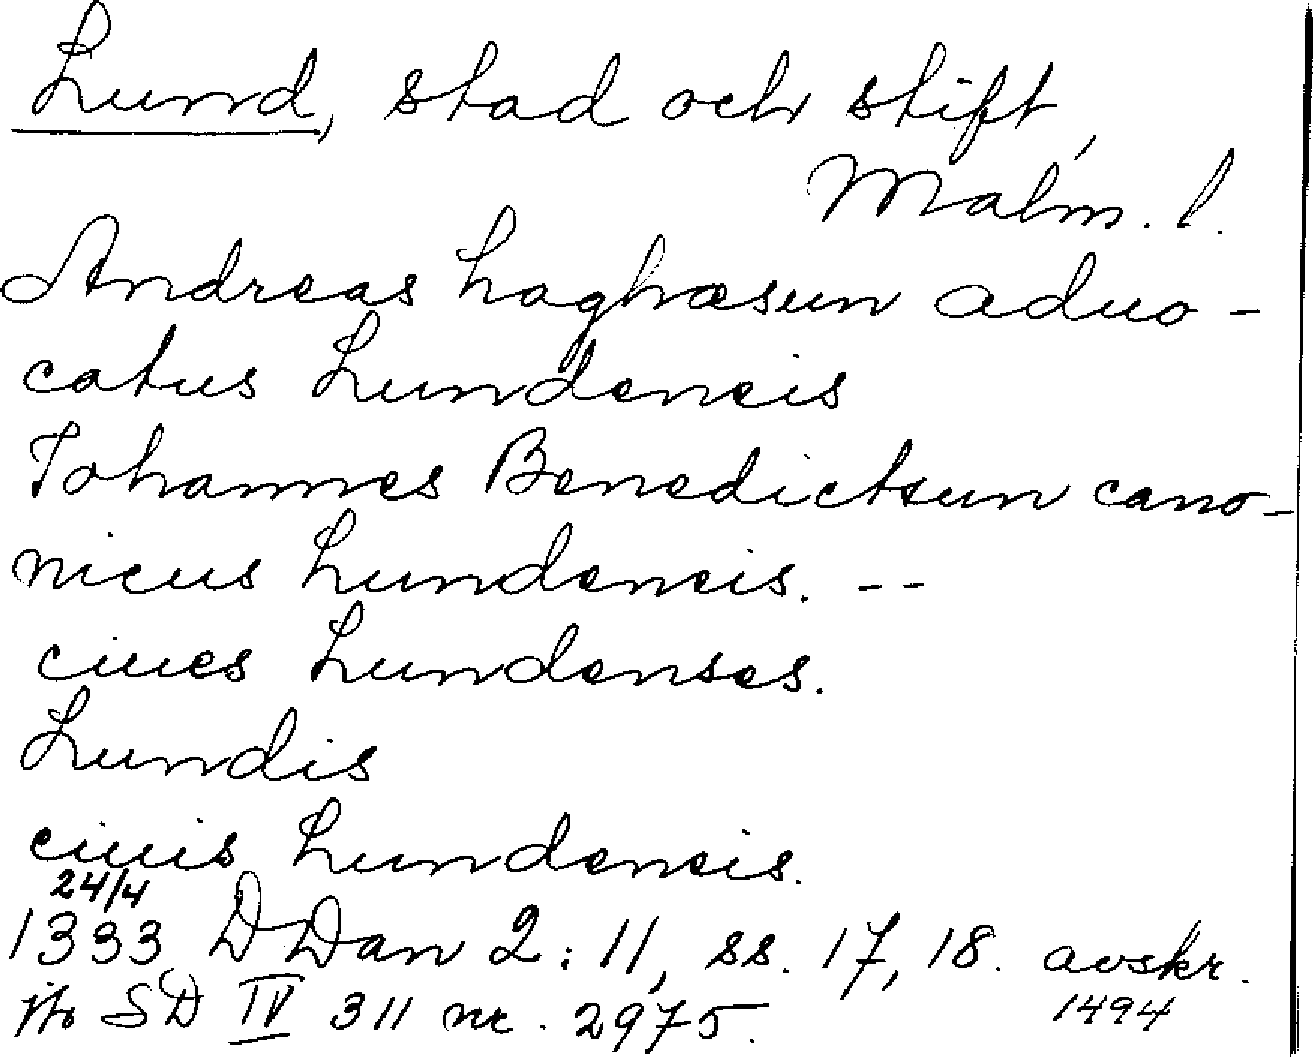 Lund, stad och stift,
Malm. l.
Andreas haghæsun aduo-
catus Lundencis
Iohannes Benedictsun cano-
nicus Lundencis. --
ciues Lundenses.
Lundis
ciuis Lundencis.
24/4
1333 DDan 2:11, ss. 17, 18. avskr.
jfr SD IV 311 nr. 2975. 1494